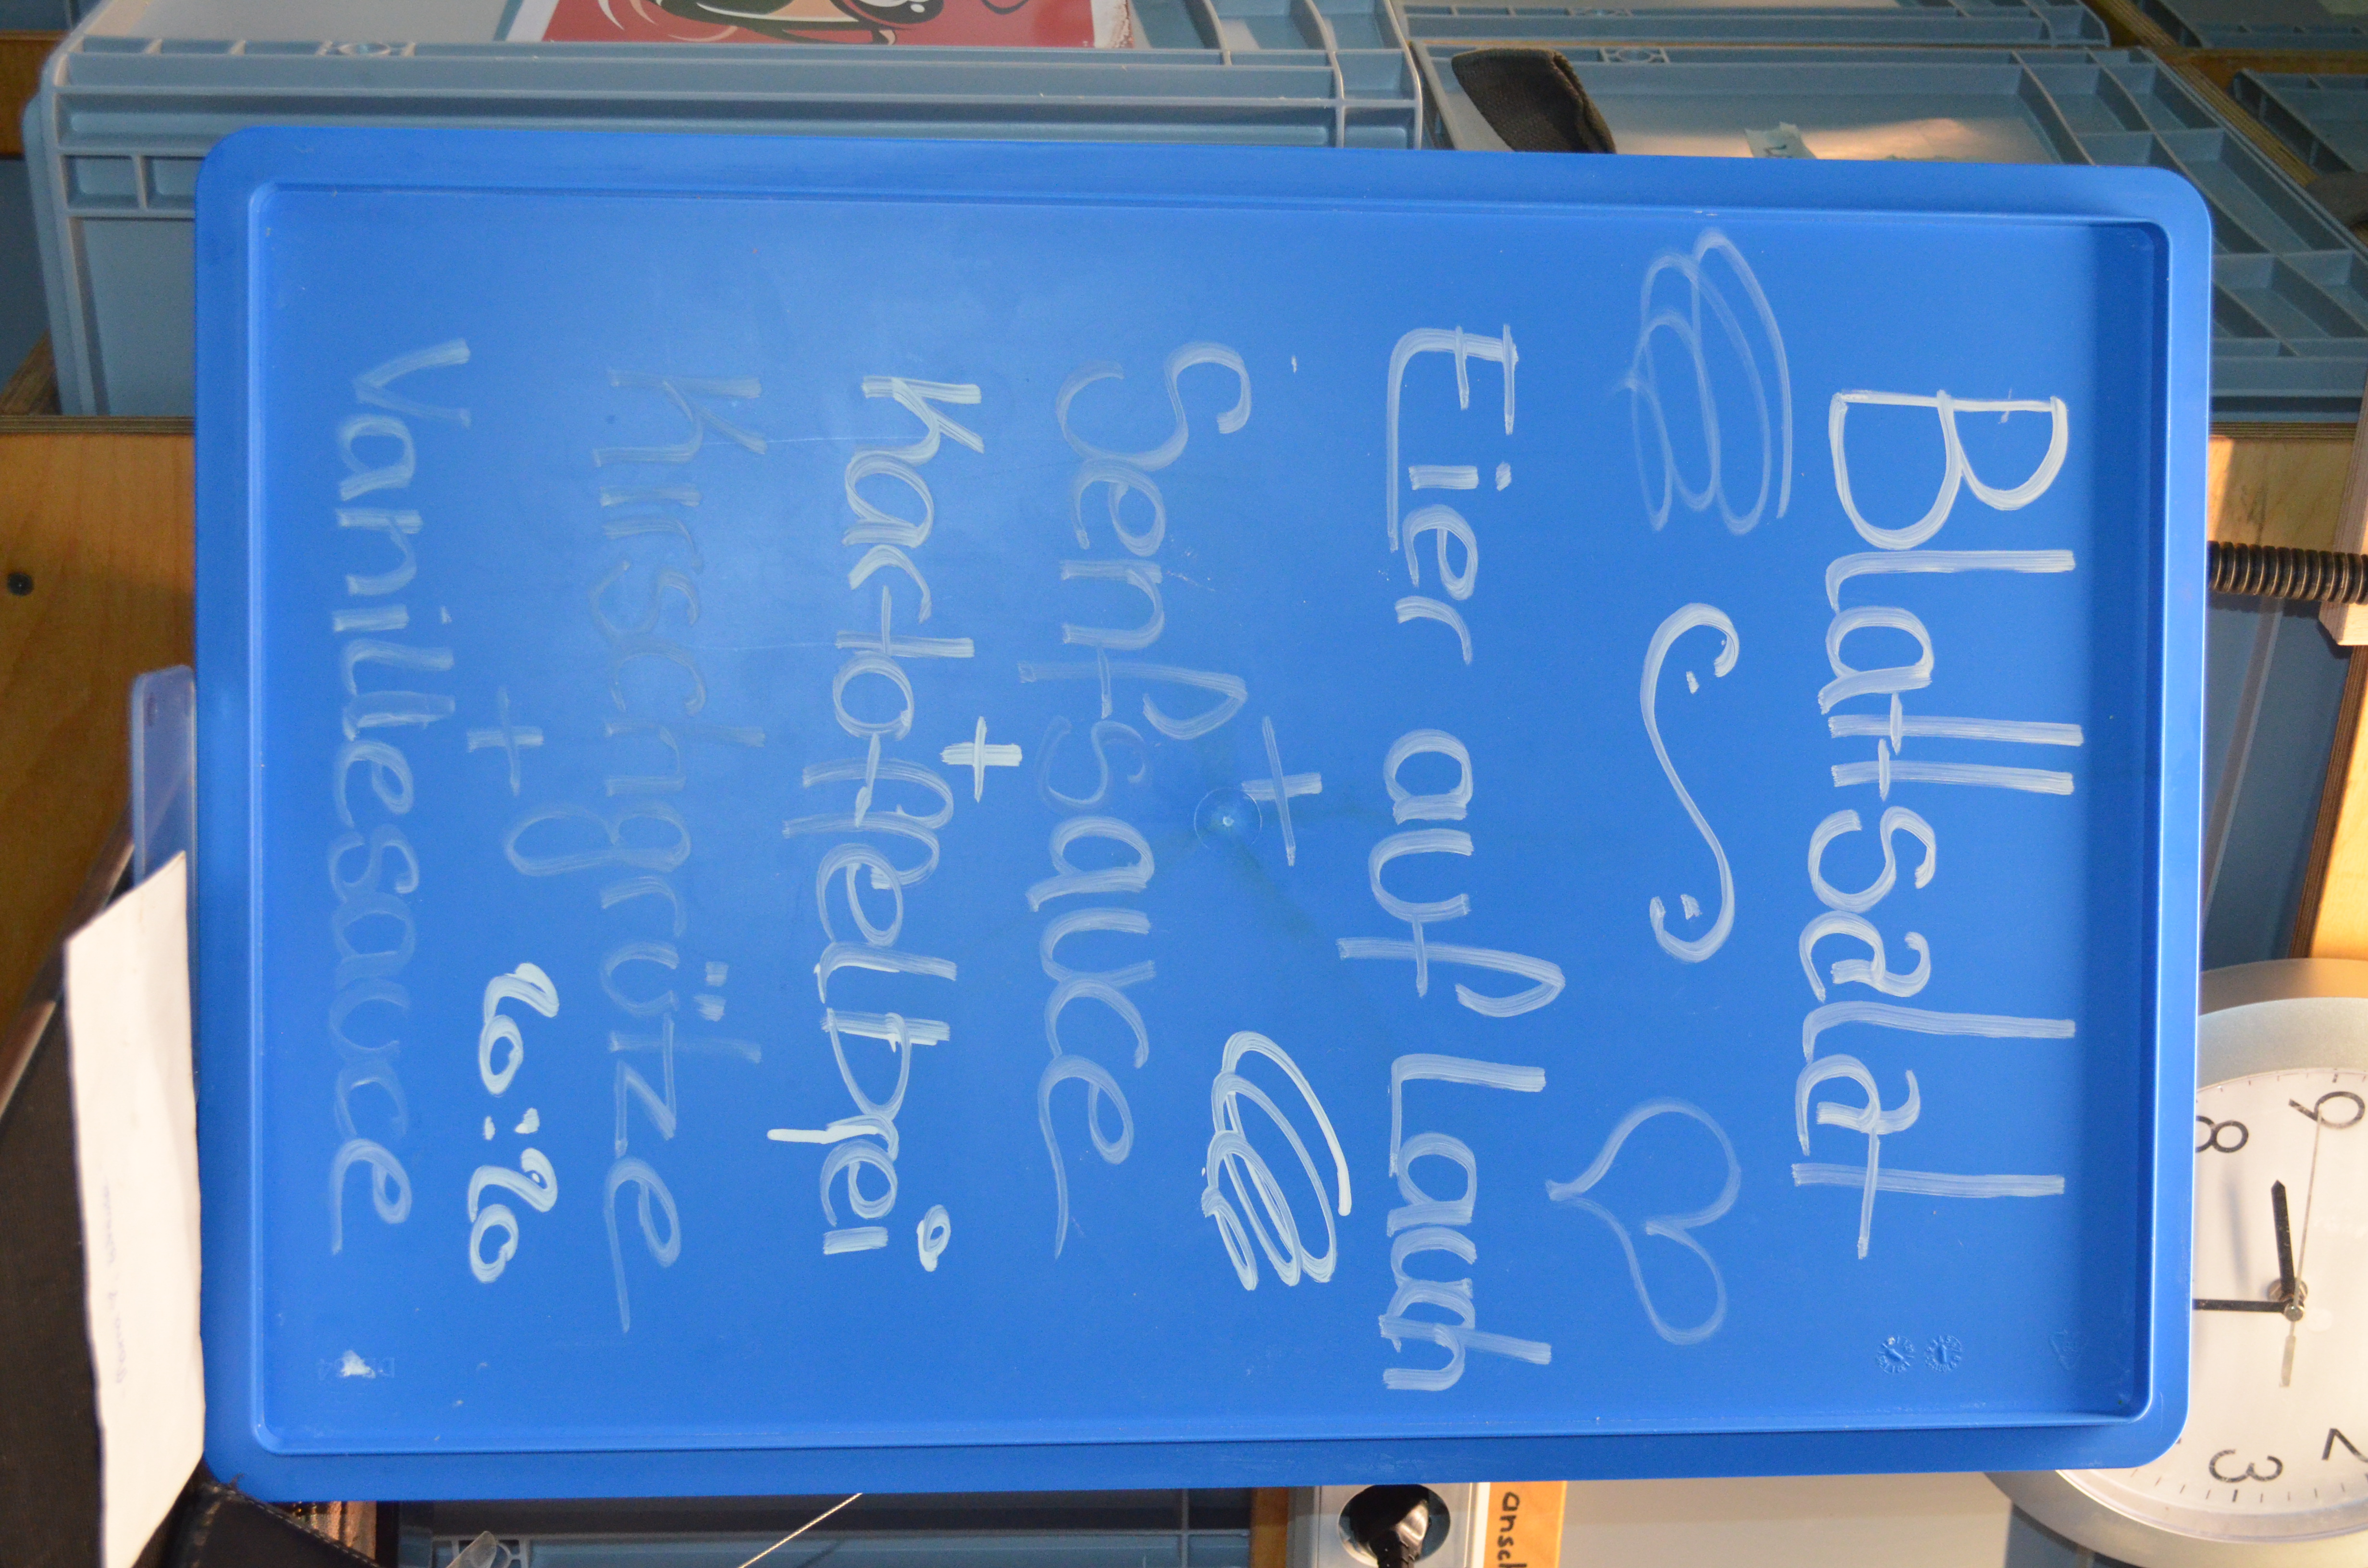 Blattsalat
Eier auf Lauch
+
Senfsauce
+
Kartoffelbrei
Kirschgrütze
+
Vanillesauce
9
8
3
2
ansch